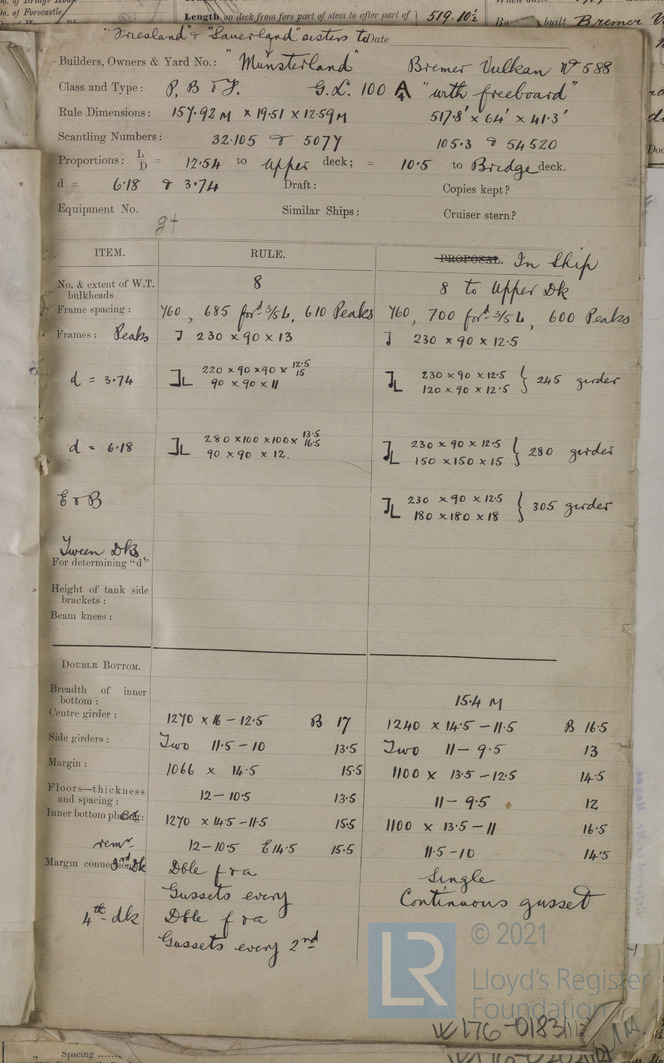 No. of Forecastle/
Length on deck from fore part of stem to after part of } 519.10½
built Bremer
"Friesland & "Sauerland" sisters to Date
Builders, Owners & Yard No.: "Münsterland" Bremer Vulkan No 588
Class and Type: P, B & F. G.L. 100 A/4 "with freeboard"
Rule Dimensions: 157.92 M x 19.51 x 12.59M 517.8' x 64' x 41.3'
Scantling Numbers: 32.105 & 5077 105.3 & 54520
Proportions: L/D = 12.54 to Upper deck; = 10.5 to Bridge deck.
d = 6.18 & 3.74 Draft: Copies kept?
Equipment No. gt Similar Ships: Cruiser stern?
ITEM. RULE. PROPOSAL. In Ship
No. & extent of W.T. bulkheads 8 8 to Upper Dk
Frame spacing: 760, 685 for'd 3/5 L, 610 Peaks 760, 700 for'd 3/5 L, 600 Peaks
Frames: Peaks 230 x 90 x 13 230 x 90 x 12.5
d = 3.74 220 x 90 x 90 x 12.5/15 230 x 90 x 12.5 } 245 girder
90 x 90 x 11 120 x 90 x 12.5
d = 6.18 280 x 100 x 100 x 13.5/16.5 230 x 90 x 12.5 } 280 girder
90 x 90 x 12. 150 x 150 x 15
E & B 230 x 90 x 12.5 } 305 girder
180 x 180 x 18
Tween Dks
For determining "d"
Height of tank side
brackets:
Beam knees:
DOUBLE BOTTOM.
Breadth of inner
bottom: 15.4 M
Centre girder: 1270 x 16 - 12.5 B 17 1240 x 14.5 - 11.5 B 16.5
Side girders: Two 11.5 - 10 13.5 Two 11 - 9.5 13
Margin: 1066 x 14.5 15.5 1100 x 13.5 - 12.5 14.5
Floors—thickness
and spacing: 12 - 10.5 13.5 11 - 9.5 12
Inner bottom plating: 1270 x 14.5 - 11.5 15.5 1100 x 13.5 - 11 16.5
remr 12 - 10.5 E 14.5 15.5 11.5 - 10 14.5
Margin connection: 3rd Dk Dble f & a Single
Gussets every Continuous gusset
4th dk Dble f & a
Gussets every 2nd
LR
© 2021
Lloyd's Register
Foundation
W176-0183
Spacing